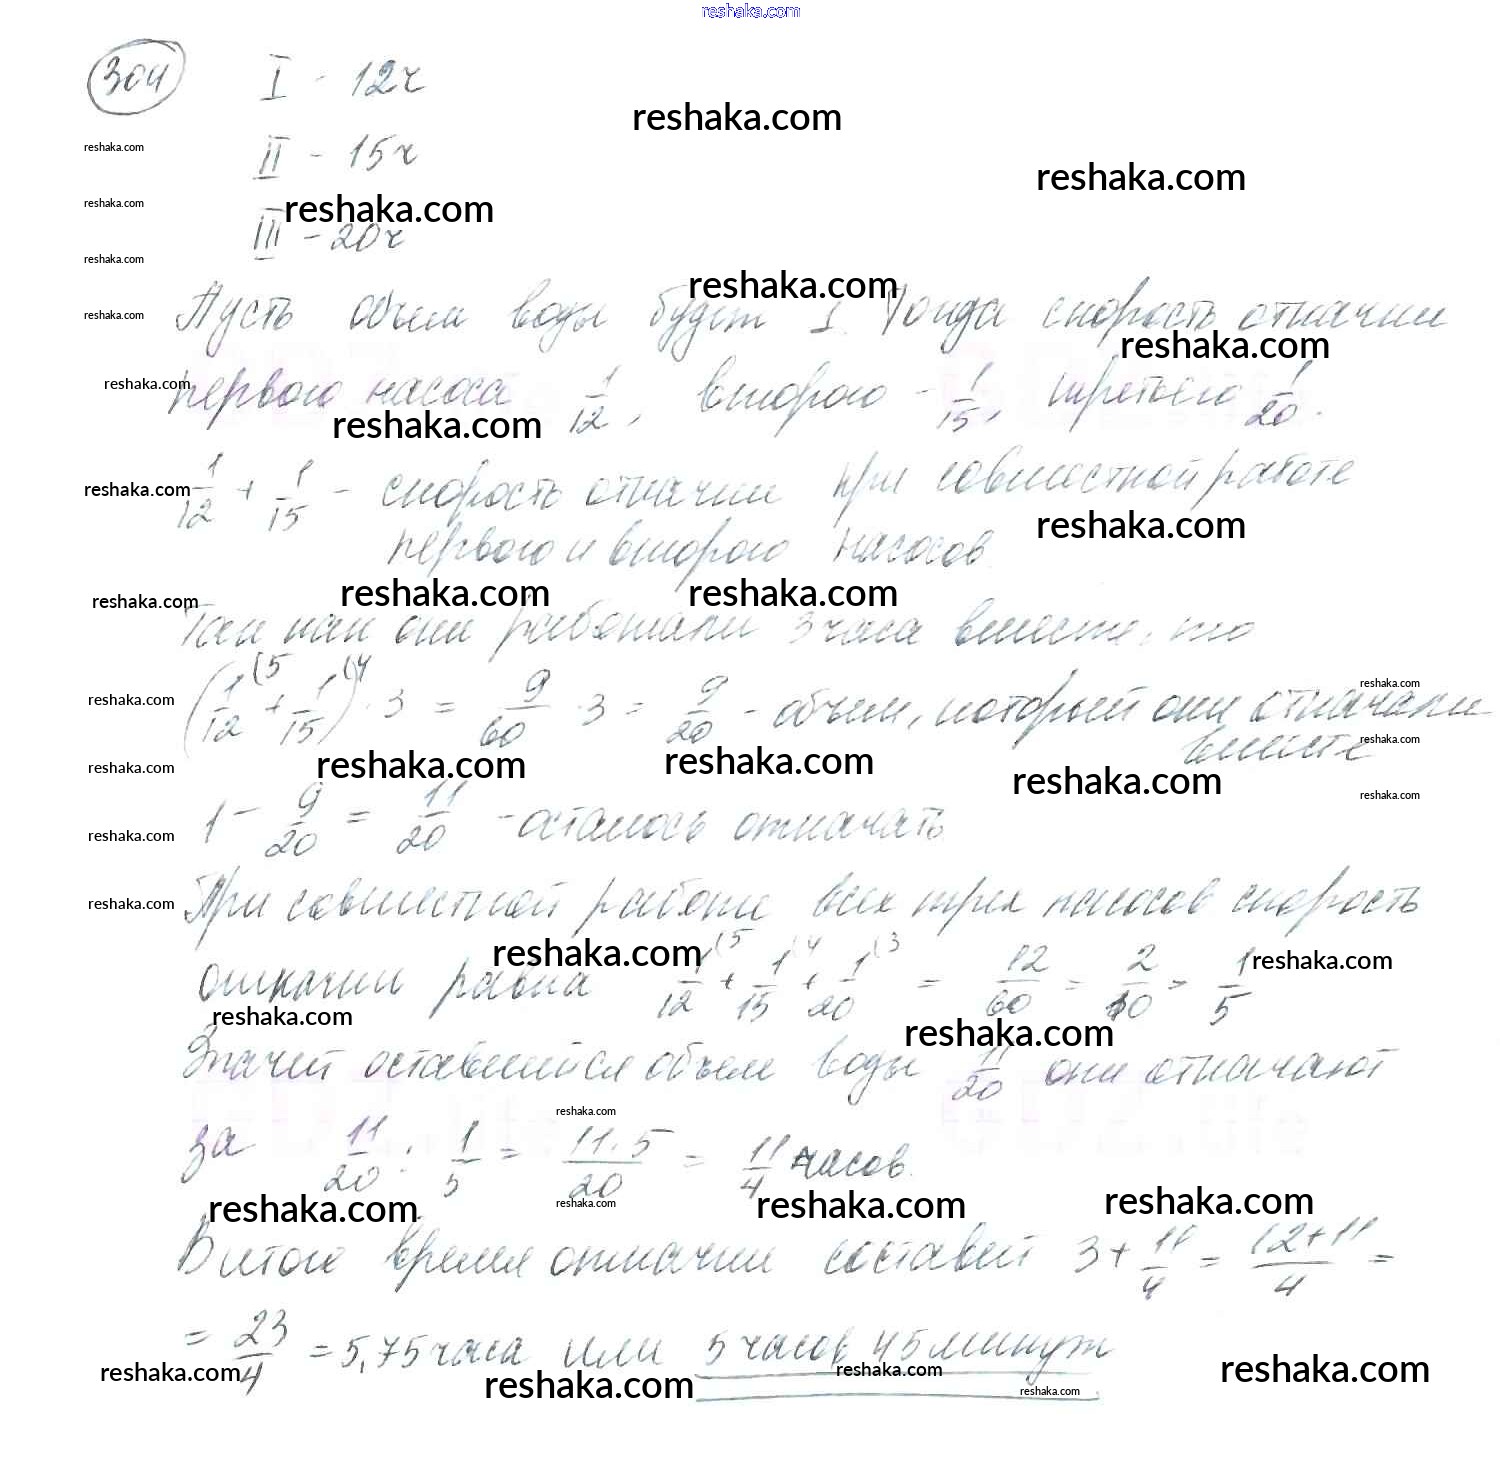 reshaka.com
304 I - 12ч
reshaka.com
II - 15ч
reshaka.com
reshaka.com
reshaka.com
reshaka.com
III - 20ч
reshaka.com
reshaka.com
Пусть объем воды будет 1. Тогда скорость откачки
reshaka.com
reshaka.com
первого насоса 1/12, второго - 1/15, третьего 1/20.
reshaka.com
reshaka.com
1/12 + 1/15 - скорость откачки при совместной работе
reshaka.com
reshaka.com
первого и второго насосов
reshaka.com
reshaka.com
reshaka.com
Так как они работали 3 часа вместе, то
reshaka.com
(1/12 (5 + 1/15 (4) · 3 = 9/60 · 3 = 9/20 - объем, который они откачали
reshaka.com
вместе
reshaka.com
reshaka.com
reshaka.com
reshaka.com
reshaka.com
reshaka.com
1 - 9/20 = 11/20 - осталось откачать
reshaka.com
При совместной работе всех трех насосов скорость
reshaka.com
reshaka.com
откачки равна 1/12 (5 + 1/15 (4 + 1/20 (3 = 12/60 = 2/10 = 1/5
reshaka.com
reshaka.com
reshaka.com
Значит оставшийся объем воды 11/20 они откачают
reshaka.com
за 11/20 : 1/5 = 11·5/20 = 11/4 часов.
reshaka.com
reshaka.com
reshaka.com
reshaka.com
В итоге время откачки составит 3 + 11/4 = 12+11/4 =
= 23/4 = 5,75 часа или 5 часов 45 минут
reshaka.com
reshaka.com
reshaka.com
reshaka.com
reshaka.com